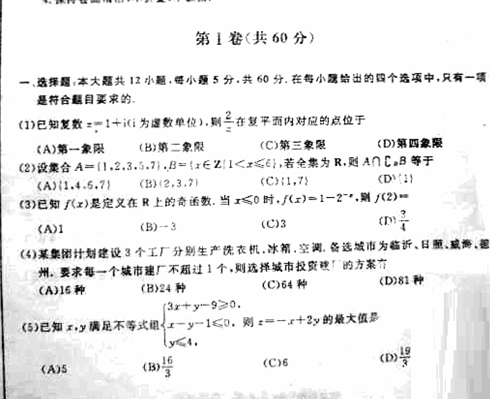 第Ⅰ卷(共60分)
一、选择题:本大题共12小题,每小题5分,共60分.在每小题给出的四个选项中,只有一项
是符合题目要求的.
(1)已知复数z=1+i(i为虚数单位),则2/z在复平面内对应的点位于
(A)第一象限 (B)第二象限 (C)第三象限 (D)第四象限
(2)设集合A={1,2,3,5,7},B={x∈Z|1<x≤6},若全集为R,则A∩∁ᵣB等于
(A){1,4,6,7} (B){2,3,7} (C){1,7} (D){1}
(3)已知f(x)是定义在R上的奇函数.当x≤0时,f(x)=1-2^{-x},则f(2)=
(A)1 (B)-3 (C)3 (D)3/4
(4)某集团计划建设3个工厂分别生产洗衣机、冰箱、空调.备选城市为临沂、日照、威海、德
州.要求每一个城市建厂不超过1个,则选择城市投资建厂的方案有
(A)16种 (B)24种 (C)64种 (D)81种
(5)已知x,y满足不等式组{3x+y-9≥0, x-y-1≤0, y≤4, 则z=-x+2y的最大值是
(A)5 (B)16/3 (C)6 (D)19/3